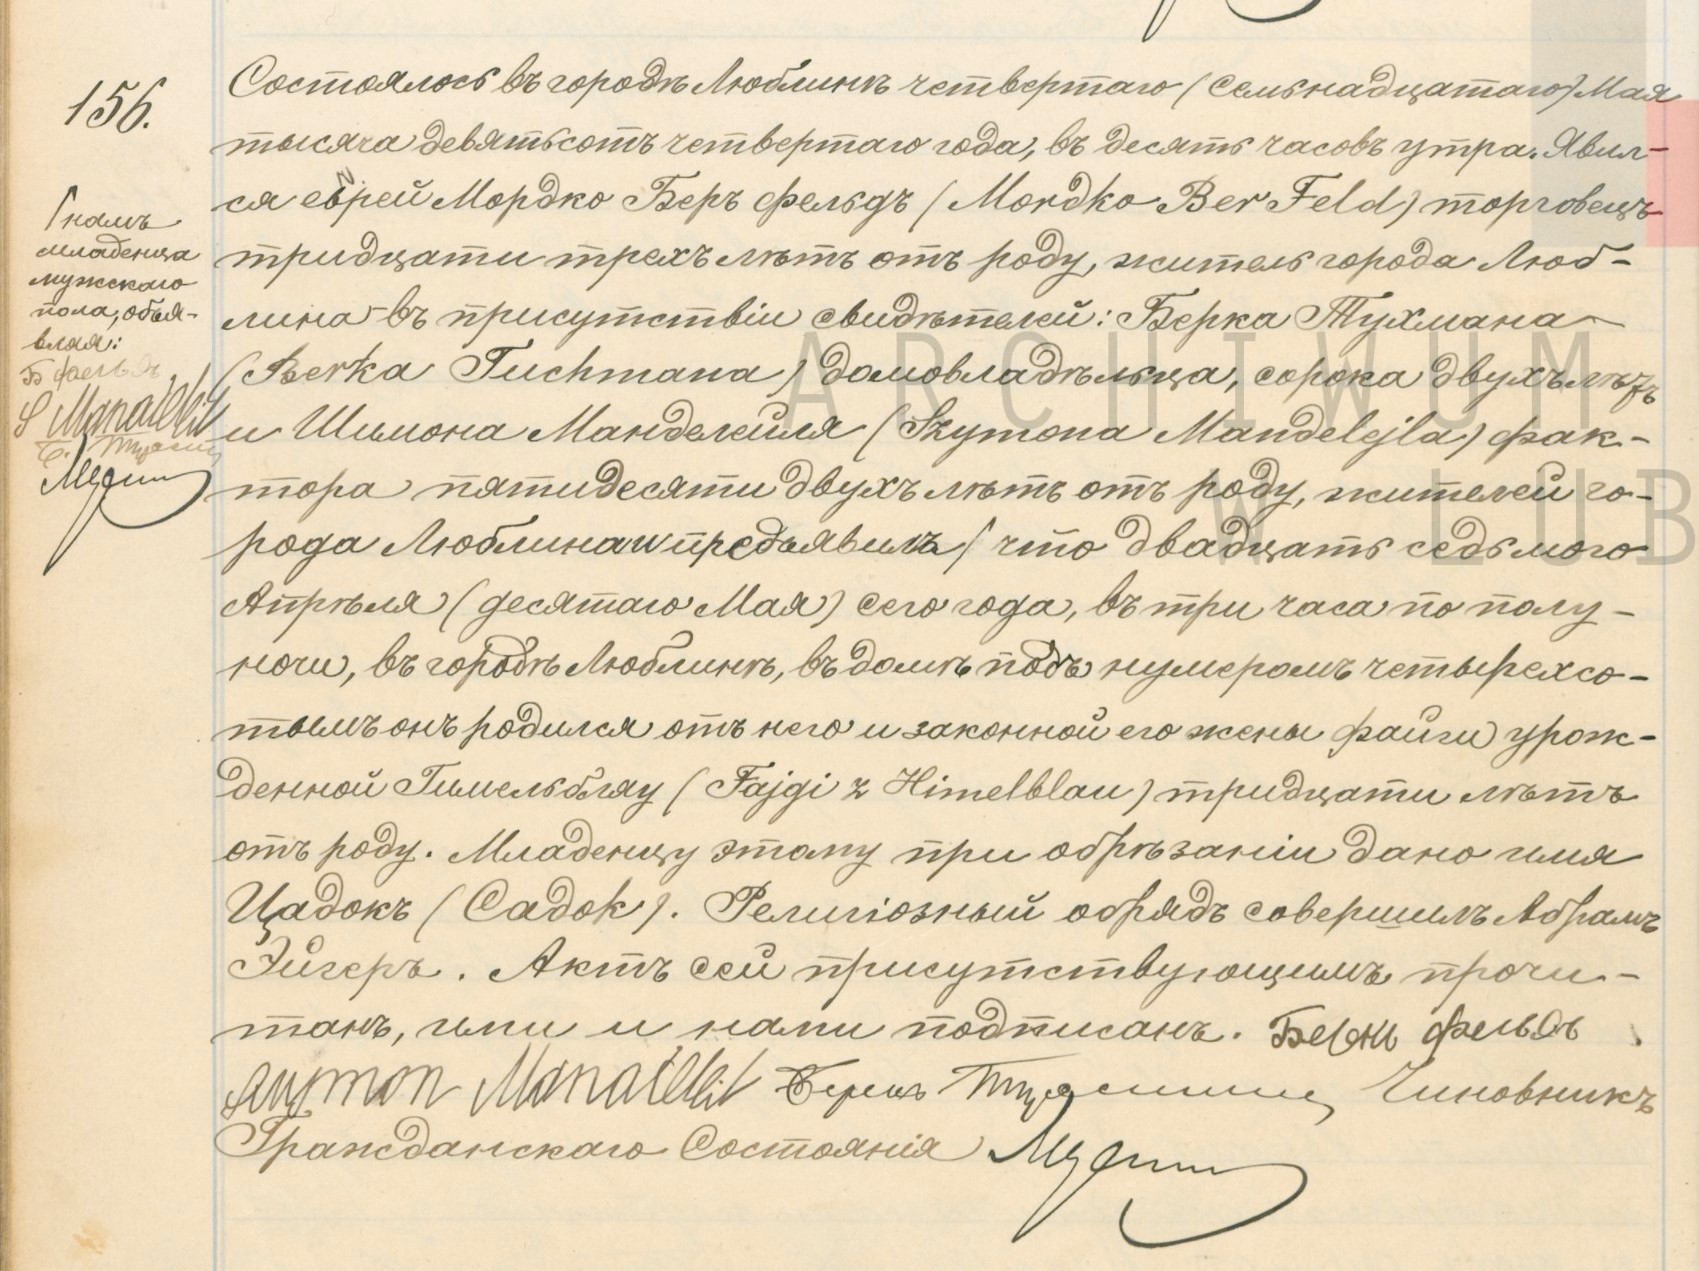 156.
Состоялось въ городѣ Люблинѣ четвертаго (семьнадцатаго) Мая
тысяча девятьсотъ четвертаго года, въ десять часовъ утра. Явил-
ся еврей Мордко Беръ Фельдъ (Mordko Ber Feld) торговецъ
тридцати трехъ лѣтъ отъ роду, житель города Люб-
лина въ присутствіи свидѣтелей: Берка Тухмана
(Berka Tuchmana) домовладѣльца, сорока двухъ лѣтъ
и Шимона Манделейля (Szymona Mandelejla) фак-
тора пятидесяти двухъ лѣтъ отъ роду, жителей го-
рода Люблина и предъявилъ / что двадцать седьмого
Апрѣля (десятаго Мая) сего года, въ три часа по полу-
ночи, въ городѣ Люблинѣ, въ домѣ подъ нумеромъ четырехсо-
тымъ онъ родился отъ него и законной его жены Файги урож-
денной Гимельблау (Fajgi z Himelblau) тридцати лѣтъ
отъ роду. Младенцу этому при обрѣзаніи дано имя
Цадокъ (Cadok). Религіозный обрядъ совершилъ Абрамъ
Эйгеръ. Актъ сей присутствующимъ прочи-
танъ, ими и нами подписанъ. Фельдъ
Чиновникъ
Гражданскаго Состоянія
/ намъ
младенца
мужскаго
пола, объя-
вляя:
Б Фельдъ
ARCHIWUM
W LUB